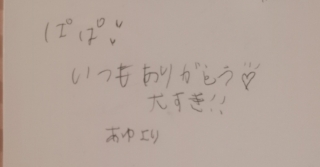 ぱぱ♡♡
いつもありがとう♡
大すき!!
あゆより